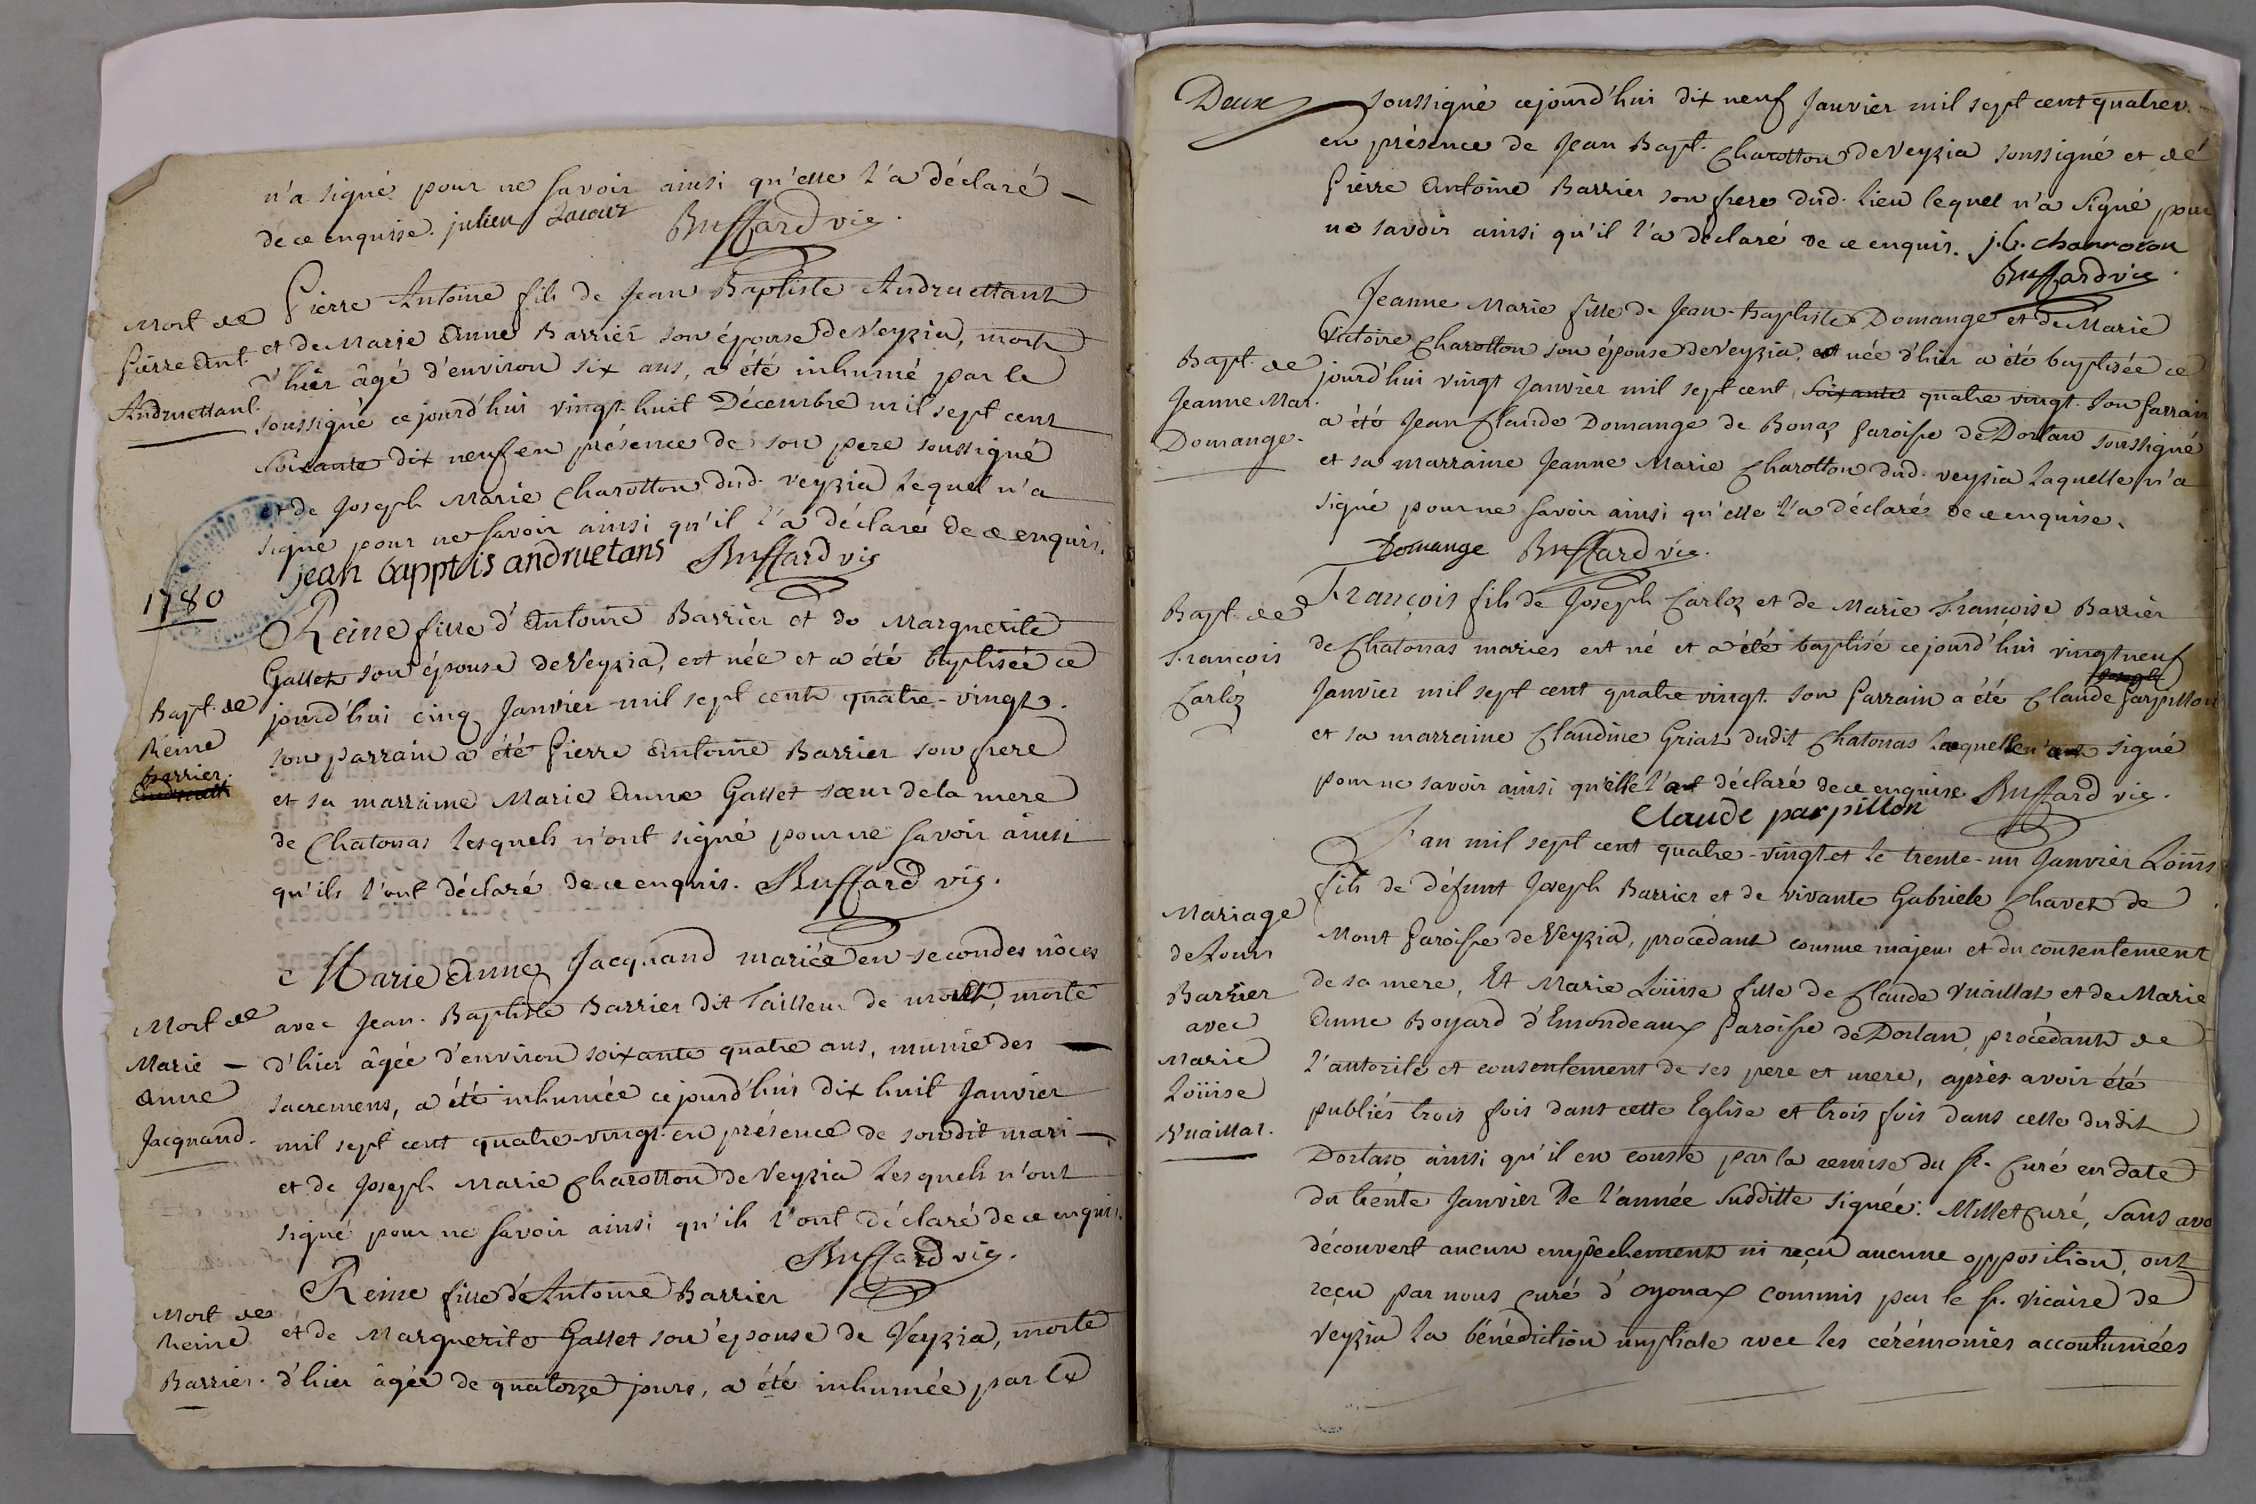 n'a signé pour ne savoir ainsi qu'elle l'a déclaré
de ce enquise. julien Lacour Buffard vic.
Mort de
Pierre Ant.
Andruettant.
Pierre Antoine fils de Jean Baptiste Andruettant
et de Marie Anne Barrier son épouse de Veyzia, mort
d'hier âgé d'environ six ans, a été inhumé par le
soussigné ce jourd'hui vingt-huit Décembre mil sept cent
soixante dix neuf en présence de son pere soussigné
et de Joseph Marie Charotton dud. Veyzia lequel n'a
signé pour ne savoir ainsi qu'il l'a déclaré de ce enquis.
jean bapptis andruetans Buffard vic
1780
Bapt. de
Reine
barrier.
Reine fille d'Antoine Barrier et de Marguerite
Gallet son épouse de Veyzia, est née et a été baptisée ce
jourd'hui cinq Janvier mil sept cent quatre-vingt.
son parrain a été Pierre Antoine Barrier son frere
et sa marraine Marie Anne Gallet sœur de la mere
de Chatonas lesquels n'ont signé pour ne savoir ainsi
qu'ils l'ont déclaré de ce enquis. Buffard vic.
Mort de
Marie
Anne
Jacquand.
Marie Anne Jacquand mariée en secondes nôces
avec Jean-Baptiste Barrier dit Tailleur de mont, morte
d'hier âgée d'environ soixante quatre ans, munie des
sacremens, a été inhumée ce jourd'hui dix huit Janvier
mil sept cent quatre-vingt en présence de sondit mari
et de Joseph Marie Charotton de Veyzia lesquels n'ont
signé pour ne savoir ainsi qu'ils l'ont déclaré de ce enquis.
Buffard vic.
Mort de
Reine
Barrier.
Reine fille d'Antoine Barrier
et de Marguerite Gallet son épouse de Veyzia, morte
d'hier âgée de quatorze jours, a été inhumée par le
Deux
soussigné ce jourd'hui dix neuf Janvier mil sept cent quatrev.
en présence de Jean Bapt. Charotton de Veyzia soussigné et de
Pierre Antoine Barrier son frere dud. lieu lequel n'a signé pour
ne savoir ainsi qu'il l'a déclaré de ce enquis. j. b. charroton
Buffard vic.
Bapt. de
Jeanne Mar.
Domange.
Jeanne Marie fille de Jean-baptiste Domange et de Marie
Victoire Charotton son épouse de Veyzia, est née d'hier a été baptisée ce
jourd'hui vingt Janvier mil sept cent soixante quatre vingt. Son Parrain
a été Jean Claude Domange de Bonaz Paroisse de Dortan soussigné
et sa marraine Jeanne Marie Charotton dud. veyzia laquelle n'a
signé pour ne savoir ainsi qu'elle l'a déclaré de ce enquise.
Domange Buffard vic.
Bapt. de
François
Carloz
François fils de Joseph Carloz et de Marie Françoise Barrier
de Chatonas mariés est né et a été baptisé ce jourd'hui vingt neuf
Janvier mil sept cent quatre vingt. Son Parrain a été Claude Parpillon
et sa marraine Claudine Griat dudit Chatonas laquelle n'a signé
pour ne savoir ainsi qu'elle l'a déclaré de ce enquise Buffard vic.
Claude parpillon
Mariage
de Louis
Barrier
avec
Marie
Loüise
Vuaillat.
L'an mil sept cent quatre-vingt et le trente-un Janvier Loüis
fils de défunt Joseph Barrier et de vivante Gabriele Chavet de
Mont Paroisse de Veyzia, procédant comme majeur et du consentement
de sa mere, Et Marie Loüise fille de Claude Vuaillat et de Marie
Anne Boyard d'Emondeaux Paroisse de Dortan, procédant de
l'autorité et consentement de ses pere et mere, après avoir été
publiés trois fois dans cette Eglise et trois fois dans celle dudit
Dortan ainsi qu'il en conste par la remise du Sr. Curé en date
du trente Janvier de l'année susditte signée: Millet Curé, sans avo
découvert aucun empêchement ni reçu aucune opposition, ont
reçu par nous Curé d'Oyonax commis par le Sr. vicaire de
Veyzia la bénédiction nuptiale avec les cérémonies accoutumées